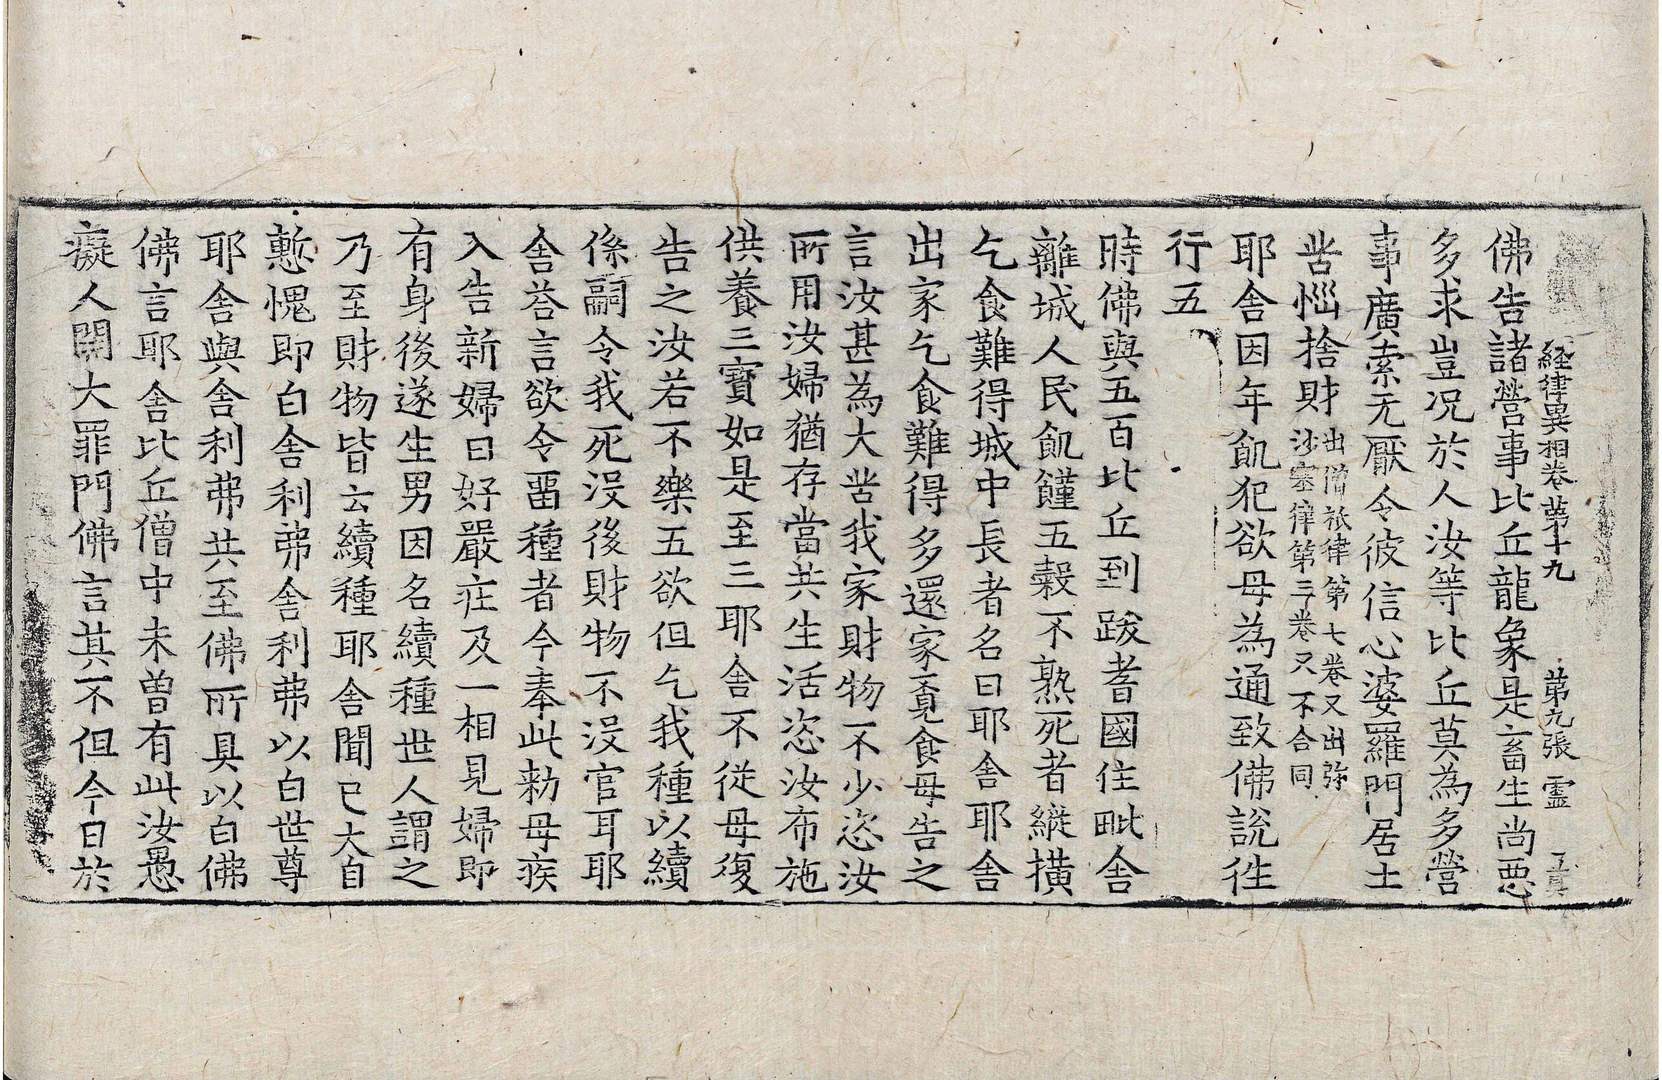 経律異相卷第十九 第九張 霊
佛告諸營事比丘龍象是畜生尚惡
多求豈况於人汝等比丘莫為多營
事廣索无厭令彼信心婆羅門居士
苦惱捨財出僧祇律第七卷又出弥
沙塞律第三卷又不合同
耶舍因年飢犯欲母為通致佛說往
行五
時佛與五百比丘到跋耆國住毗舍
離城人民飢饉五穀不熟死者縱橫
乞食難得城中長者名曰耶舍耶舍
出家乞食難得多還家覓食母告之
言汝甚為大苦我家財物不少恣汝
所用汝婦猶存當共生活恣汝布施
供養三寶如是至三耶舍不從母復
告之汝若不樂五欲但乞我種以續
係嗣令我死没後財物不没官耳耶
舍荅言欲令畱種者今奉此勑母疾
入告新婦曰好嚴庄及一相見婦即
有身後遂生男因名續種世人謂之
乃至財物皆云續種耶舍聞已大自
慙愧即白舍利弗舍利弗以白世尊
耶舍與舍利弗共至佛所具以白佛
佛言耶舍比丘僧中未曽有此汝愚
癡人開大罪門佛言其不但今日於